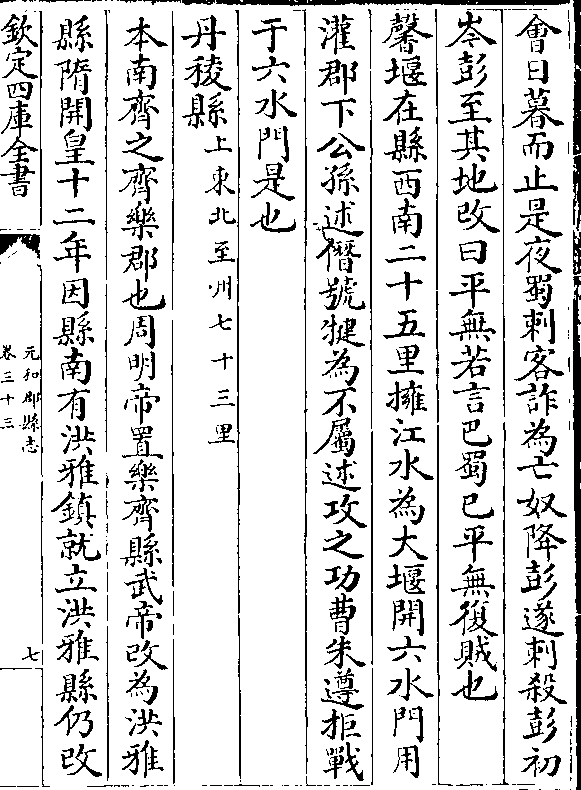 會日暮而止是夜蜀刺客詐為亡奴降彭遂刺殺彭初
岑彭至其地改曰平無若言巴蜀已平無復賊也
馨堰在縣西南二十五里擁江水為大堰開六水門用
灌郡下公孫述僭號犍為不屬述攻之功曹朱遵拒戰
于六水門是也
丹稜縣上東北至州七十三里
本南齊之齊樂郡也周明帝置樂齊縣武帝改為洪雅
縣隋開皇十二年因縣南有洪雅鎮就立洪雅縣仍改
欽定四庫全書
元和郡縣志
卷三十三
七